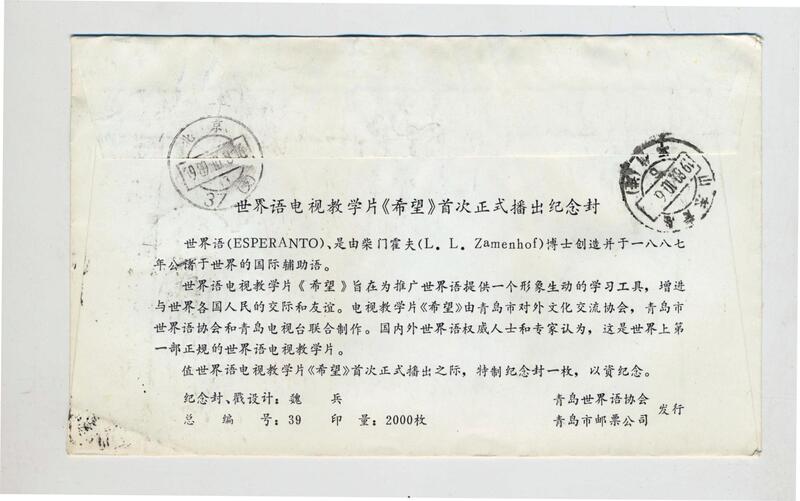 北京
37
山东青岛
世界语电视教学片《希望》首次正式播出纪念封
世界语(ESPERANTO)、是由柴门霍夫(L. L. Zamenhof)博士创造并于一八八七
年公诸于世界的国际辅助语。
世界语电视教学片《希望》旨在为推广世界语提供一个形象生动的学习工具，增进
与世界各国人民的交际和友谊。电视教学片《希望》由青岛市对外文化交流协会，青岛市
世界语协会和青岛电视台联合制作。国内外世界语权威人士和专家认为，这是世界上第
一部正规的世界语电视教学片。
值世界语电视教学片《希望》首次正式播出之际，特制纪念封一枚，以资纪念。
纪念封、戳设计：魏 兵 青岛世界语协会
总 编 号：39 印 量：2000枚 青岛市邮票公司 发行